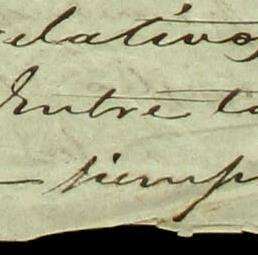 relativos
Entre to
— siemp